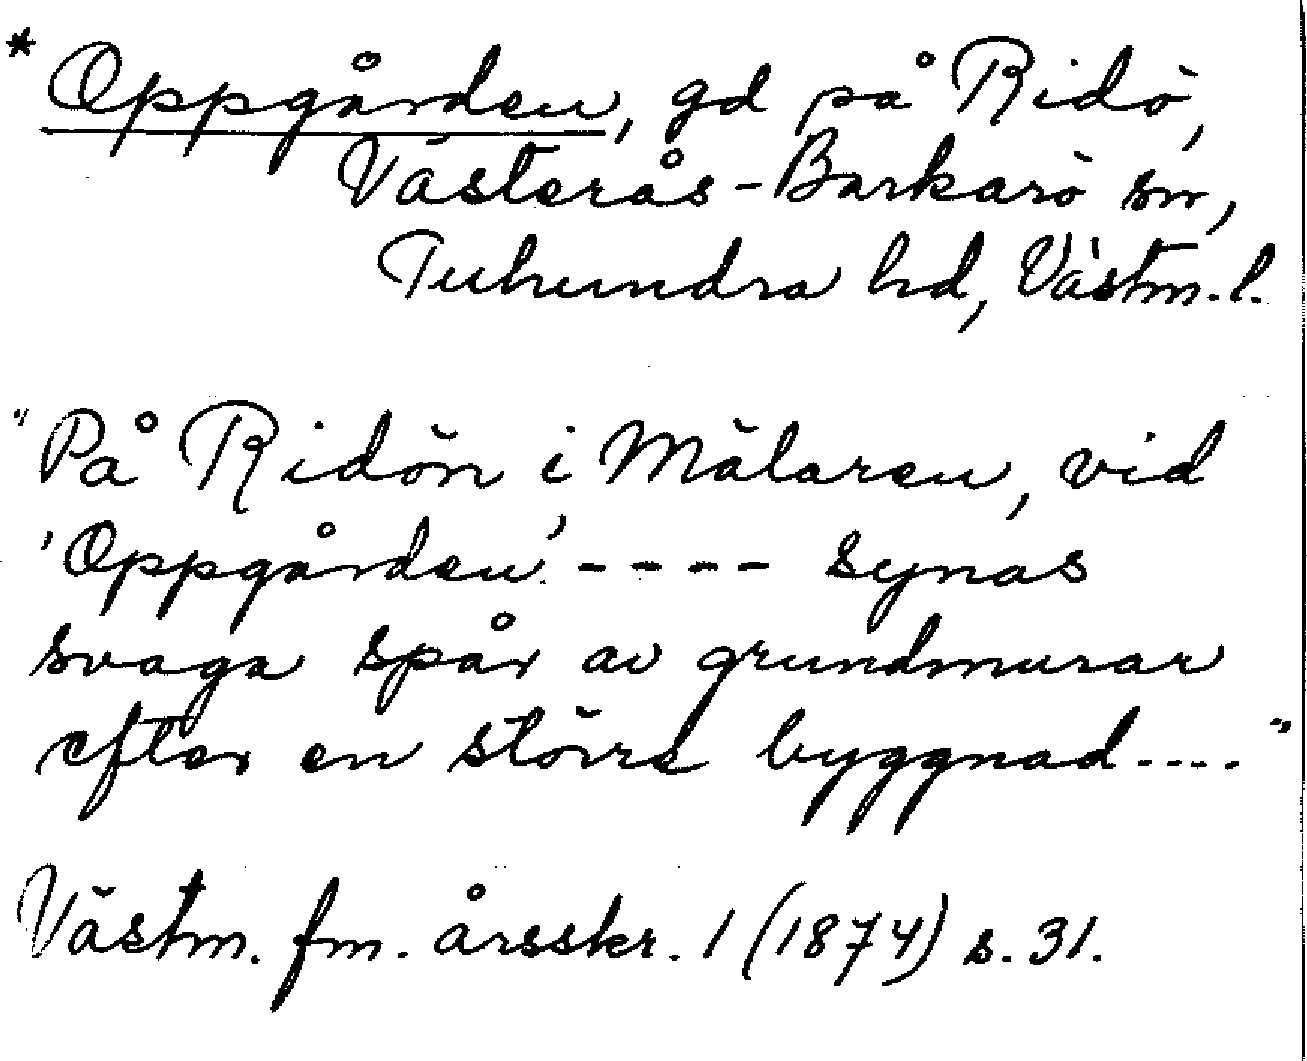 * Oppgården, gd på Ridö,
Västerås-Barkarö sn,
Tuhundra hd, Västm. l.
"På Ridön i Mälaren, vid
'Oppgården' - - - - synas
svaga spår av grundmurar
efter en större byggnad - - - -"
Västm. fm. årsskr. 1 (1874) s. 31.